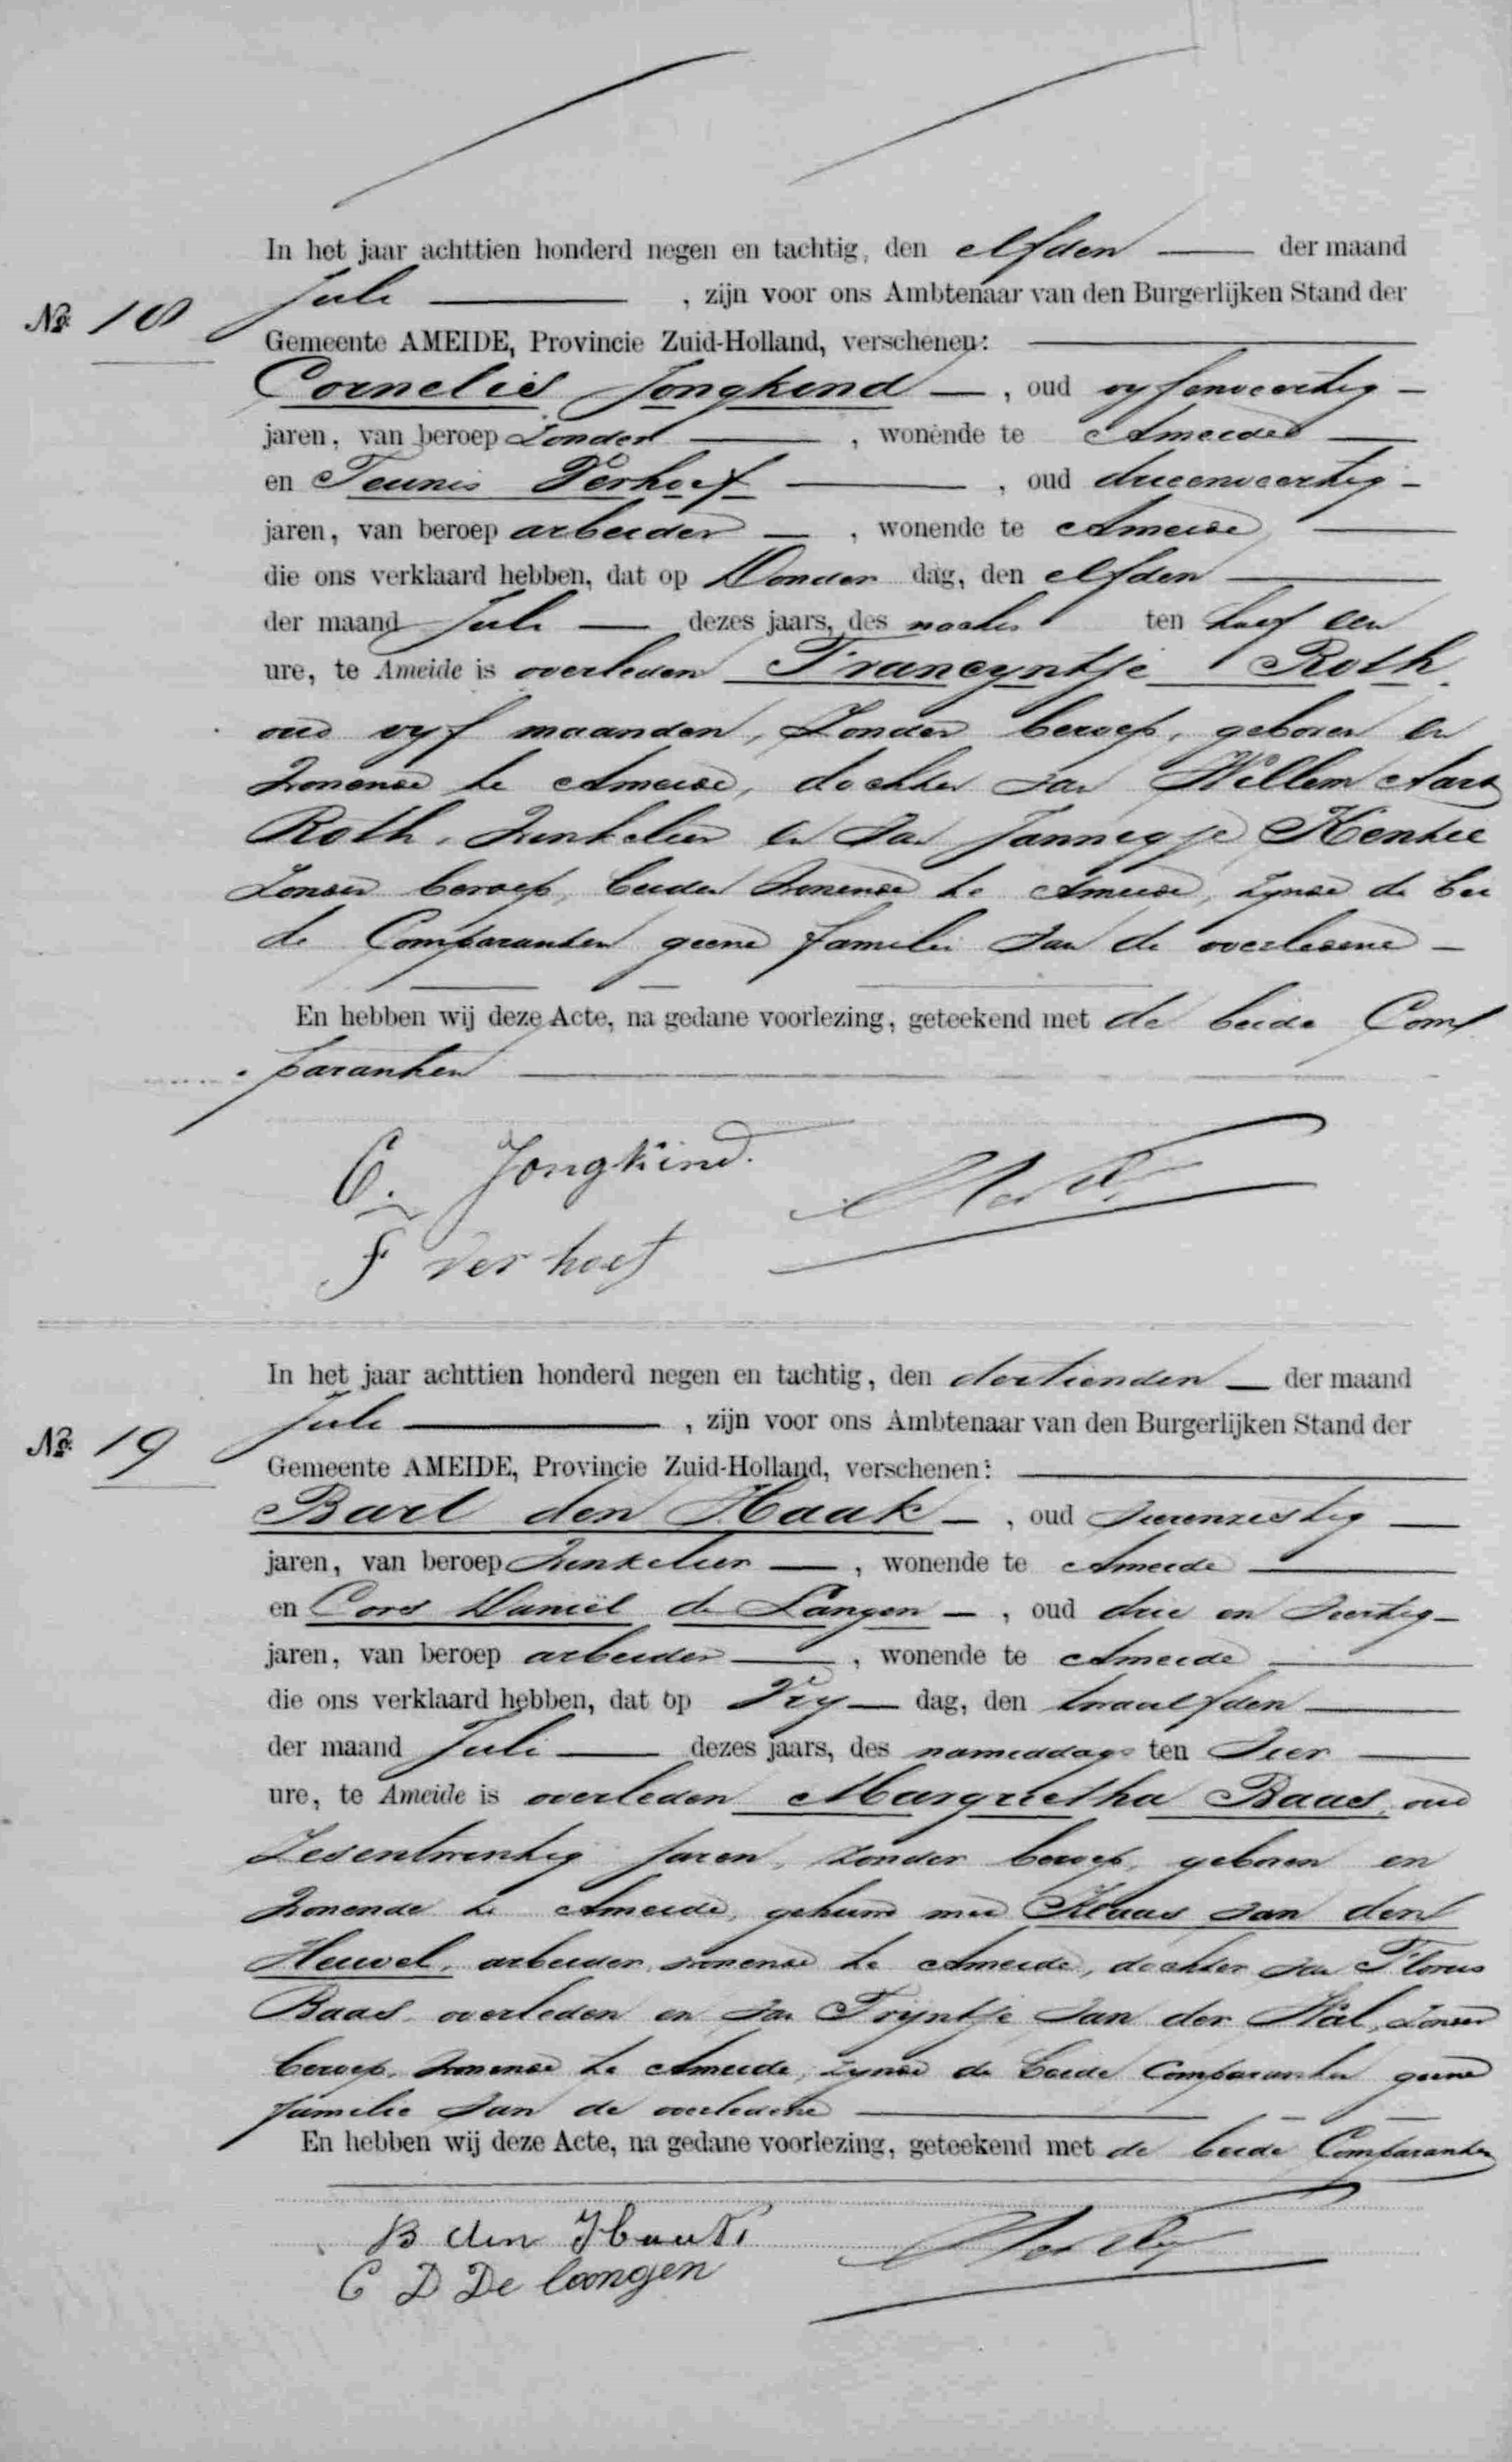 In het jaar achttien honderd negen en tachtig, den elfden der maand
No. 18 Juli , zijn voor ons Ambtenaar van den Burgerlijken Stand der
Gemeente AMEIDE, Provincie Zuid-Holland, verschenen:
Cornelis Jongkind , oud vyfenveertig
jaren, van beroep Zonder , wonende te Ameide
en Teunis Verhoef , oud drieenveertig
jaren, van beroep arbeider , wonende te Ameide
die ons verklaard hebben, dat op Donder dag, den elfden
der maand Juli dezes jaars, des nachts ten half een
ure, te Ameide is overleden Francyntje Roth
oud vyf maanden, Zonder beroep, geboren en
wonende te Ameide, dochter van Willem Aart
Roth, Winkelier en van Jannigje
Zonder beroep, beiden wonende te Ameide, zynde de bei
de Comparanten geene familie van de overledene
En hebben wij deze Acte, na gedane voorlezing, geteekend met de beide Com
paranten
C. Jongkind.
Verhoef
In het jaar achttien honderd negen en tachtig, den dertienden der maand
No. 19 Juli , zijn voor ons Ambtenaar van den Burgerlijken Stand der
Gemeente AMEIDE, Provincie Zuid-Holland, verschenen:
Bart den Haak , oud vierenzestig
jaren, van beroep Winkelier , wonende te Ameide
en Cors Daniël de Langen , oud drie en veertig
jaren, van beroep arbeider , wonende te Ameide
die ons verklaard hebben, dat op Vry dag, den twaalfden
der maand Juli dezes jaars, des namiddags ten vier
ure, te Ameide is overleden Margrietha Baas, oud
Zesentwintig jaren, zonder beroep, geboren en
wonende te Ameide, gehuwd met Klaas van den
Heuvel, arbeider, wonende te Ameide, dochter van Florus
Baas, overleden en van Tryntje van der Wal, Zonder
beroep, wonende te Ameide, zynde de beide Comparanten geene
familie van de overledene
En hebben wij deze Acte, na gedane voorlezing, geteekend met de beide Comparanten
B den Haak
C D De Langen